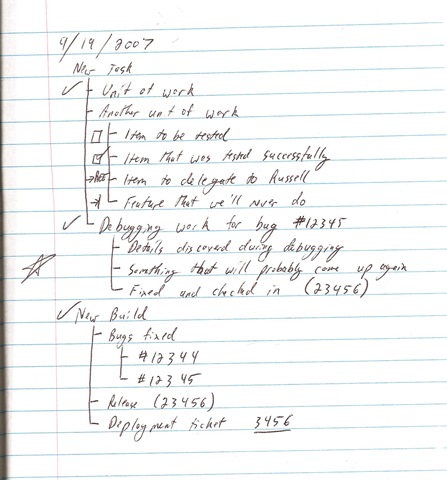 9/19/2007
New Task
Unit of work
Another unit of work
Item to be tested
Item that was tested successfully
Item to delegate to Russell
Feature that we'll never do
Debugging work for bug #12345
Details discovered during debugging
Something that will probably come up again
Fixed and checked in (23456)
New Build
Bugs fixed
#12344
#12345
Release (23456)
Deployment ticket 3456